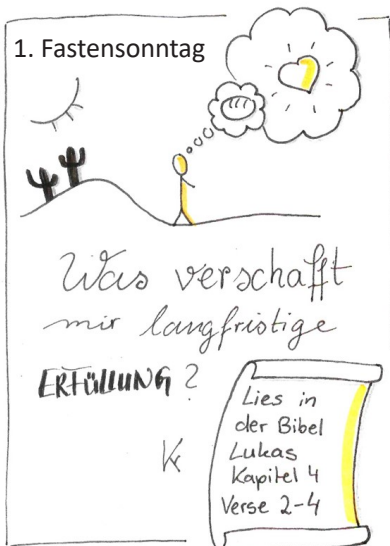 1. Fastensonntag
Was verschafft
mir langfristige
ERFÜLLUNG?
Lies in
der Bibel
Lukas
Kapitel 4
Verse 2-4